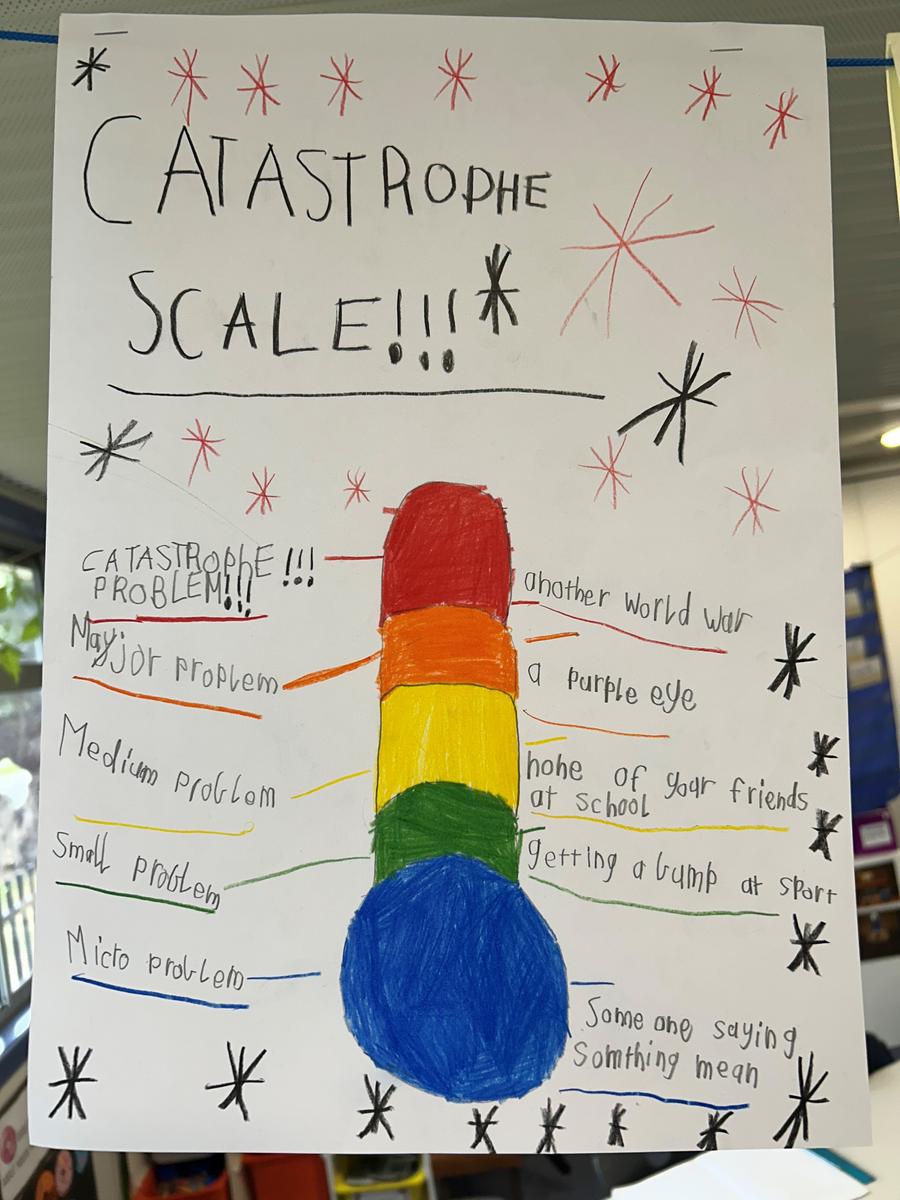 CATASTROPHE
SCALE!!!
CATASTROphE !!!
PROBLEM!!!
another world war
Mayjor proplem
a purple eye
Medium problom
hohe of your friends
at school
Small problem
getting a bump at sport
Micro problem
Some one saying
Somthing mean